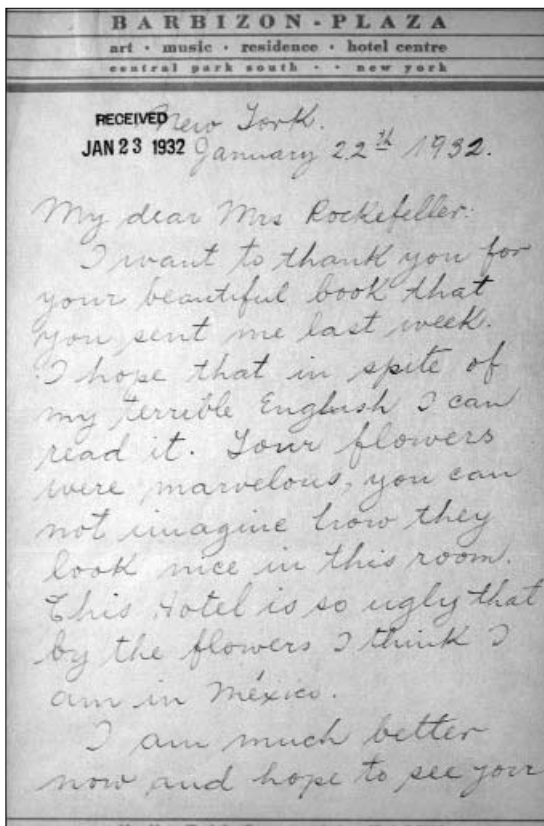 BARBIZON-PLAZA
art · music · residence · hotel centre
central park south · · new york
RECEIVED
JAN 23 1932
New York.
January 22th 1932.
My dear Mrs Rockefeller:
I want to thank you for
your beautiful book that
you sent me last week.
I hope that in spite of
my terrible English I can
read it. Your flowers
were marvelous, you can
not imagine how they
look nice in this room.
This Hotel is so ugly that
by the flowers I think I
am in México.
I am much better
now and hope to see your